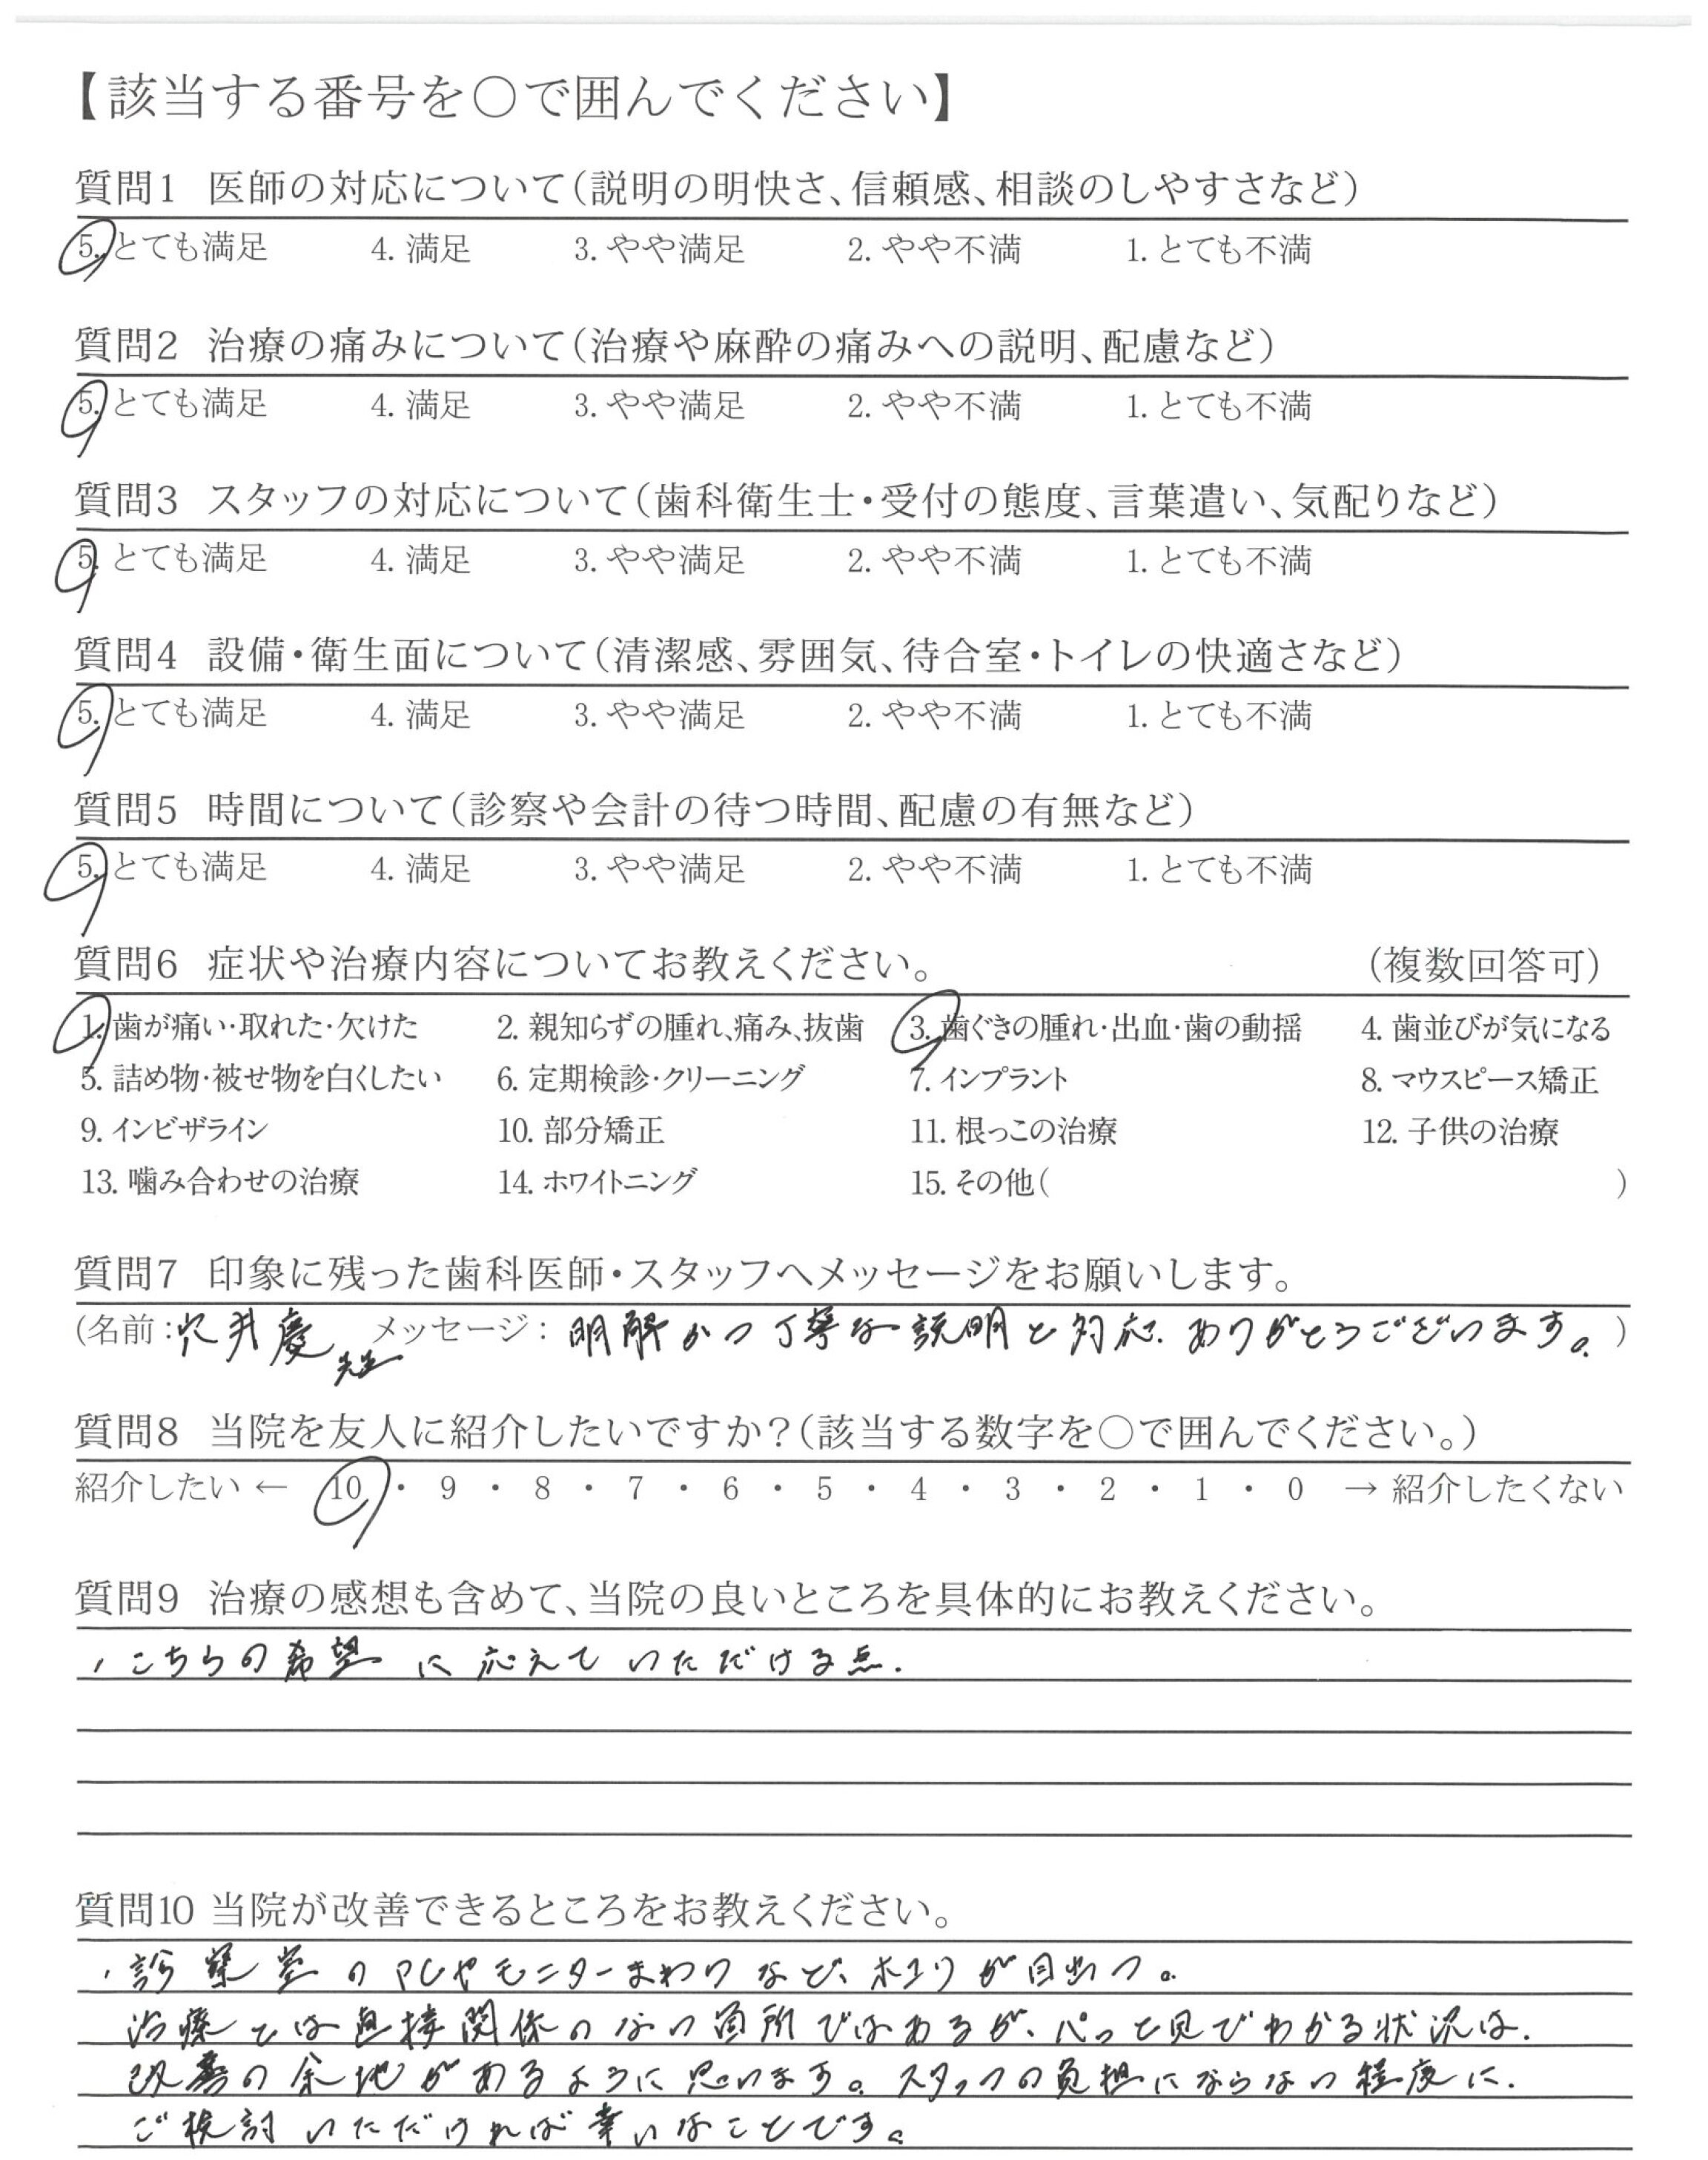 【該当する番号を○で囲んでください】
質問1 医師の対応について（説明の明快さ、信頼感、相談のしやすさなど）
5. とても満足 4. 満足 3. やや満足 2. やや不満 1. とても不満
質問2 治療の痛みについて（治療や麻酔の痛みへの説明、配慮など）
5. とても満足 4. 満足 3. やや満足 2. やや不満 1. とても不満
質問3 スタッフの対応について（歯科衛生士・受付の態度、言葉遣い、気配りなど）
5. とても満足 4. 満足 3. やや満足 2. やや不満 1. とても不満
質問4 設備・衛生面について（清潔感、雰囲気、待合室・トイレの快適さなど）
5. とても満足 4. 満足 3. やや満足 2. やや不満 1. とても不満
質問5 時間について（診察や会計の待つ時間、配慮の有無など）
5. とても満足 4. 満足 3. やや満足 2. やや不満 1. とても不満
質問6 症状や治療内容についてお教えください。 （複数回答可）
1. 歯が痛い・取れた・欠けた 2. 親知らずの腫れ、痛み、抜歯 3. 歯ぐきの腫れ・出血・歯の動揺 4. 歯並びが気になる
5. 詰め物・被せ物を白くしたい 6. 定期検診・クリーニング 7. インプラント 8. マウスピース矯正
9. インビザライン 10. 部分矯正 11. 根っこの治療 12. 子供の治療
13. 噛み合わせの治療 14. ホワイトニング 15. その他（ ）
質問7 印象に残った歯科医師・スタッフへメッセージをお願いします。
（名前：穴井慶先生 メッセージ：明解かつ丁寧な説明と対応、ありがとうございます。）
質問8 当院を友人に紹介したいですか？（該当する数字を○で囲んでください。）
紹介したい ← 10 ・ 9 ・ 8 ・ 7 ・ 6 ・ 5 ・ 4 ・ 3 ・ 2 ・ 1 ・ 0 → 紹介したくない
質問9 治療の感想も含めて、当院の良いところを具体的にお教えください。
・こちらの希望に応えていただける点．
質問10 当院が改善できるところをお教えください。
・診察室のPCやモニターまわりなど、ホコリが目立つ。
治療とは直接関係のない箇所ではあるが、パッと見でわかる状況は、
改善の余地があるように思います。スタッフの負担にならない程度に、
ご検討いただければ幸いなことです。